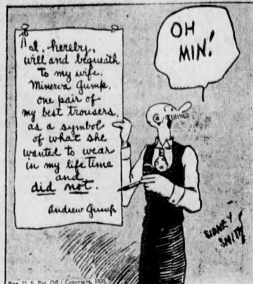 I, hereby,
will and bequeath
to my wife,
Minerva Gump,
one pair of
my best trousers,
as a symbol
of what she
wanted to wear
in my life time
and
did not.
Andrew Gump
OH
MIN!
SIDNEY
SMITH
Reg. U. S. Pat. Off.; Copyright,